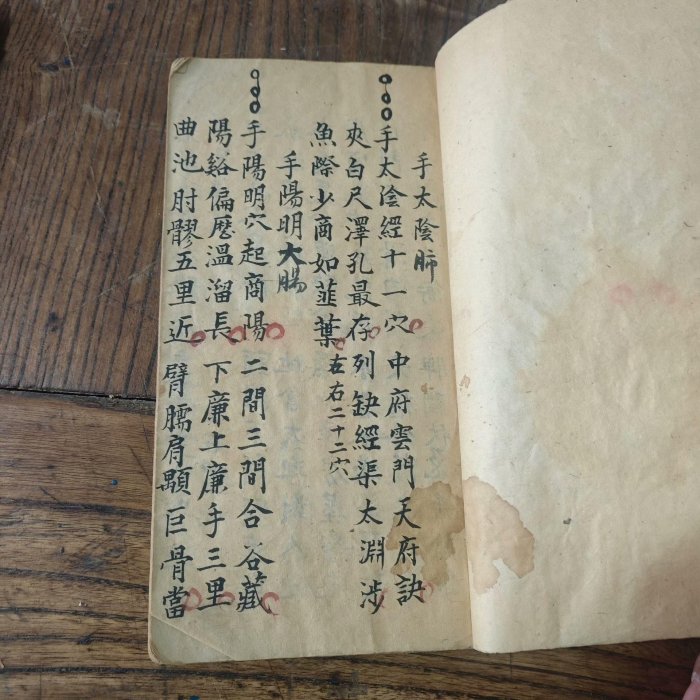 手太陰肺
手太陰經十一穴中府雲門天府訣
夾白尺澤孔最存列缺經渠太淵涉
魚際少商如韮葉左右二十二穴
手陽明大腸
手陽明穴起商陽二間三間合谷藏
陽谿偏歷溫溜長下廉上廉手三里
曲池肘髎五里近臂臑肩髃巨骨當